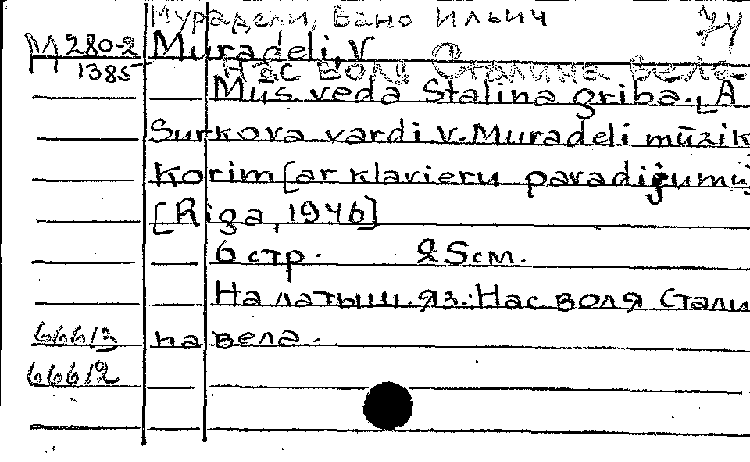 Мурадели, Вано Ильич 74
М 280-2 Muradeli, V
1385 Нас воля Сталина вела
Mūs veda Stalina griba. [A
Surkova vārdi V. Muradeli mūzik
Korim [ar klavieru pavadījumu]
[Rīga, 1946]
6 стр. 25 см.
На латыш. яз.: Нас воля Стали
66613 на вела.
66612